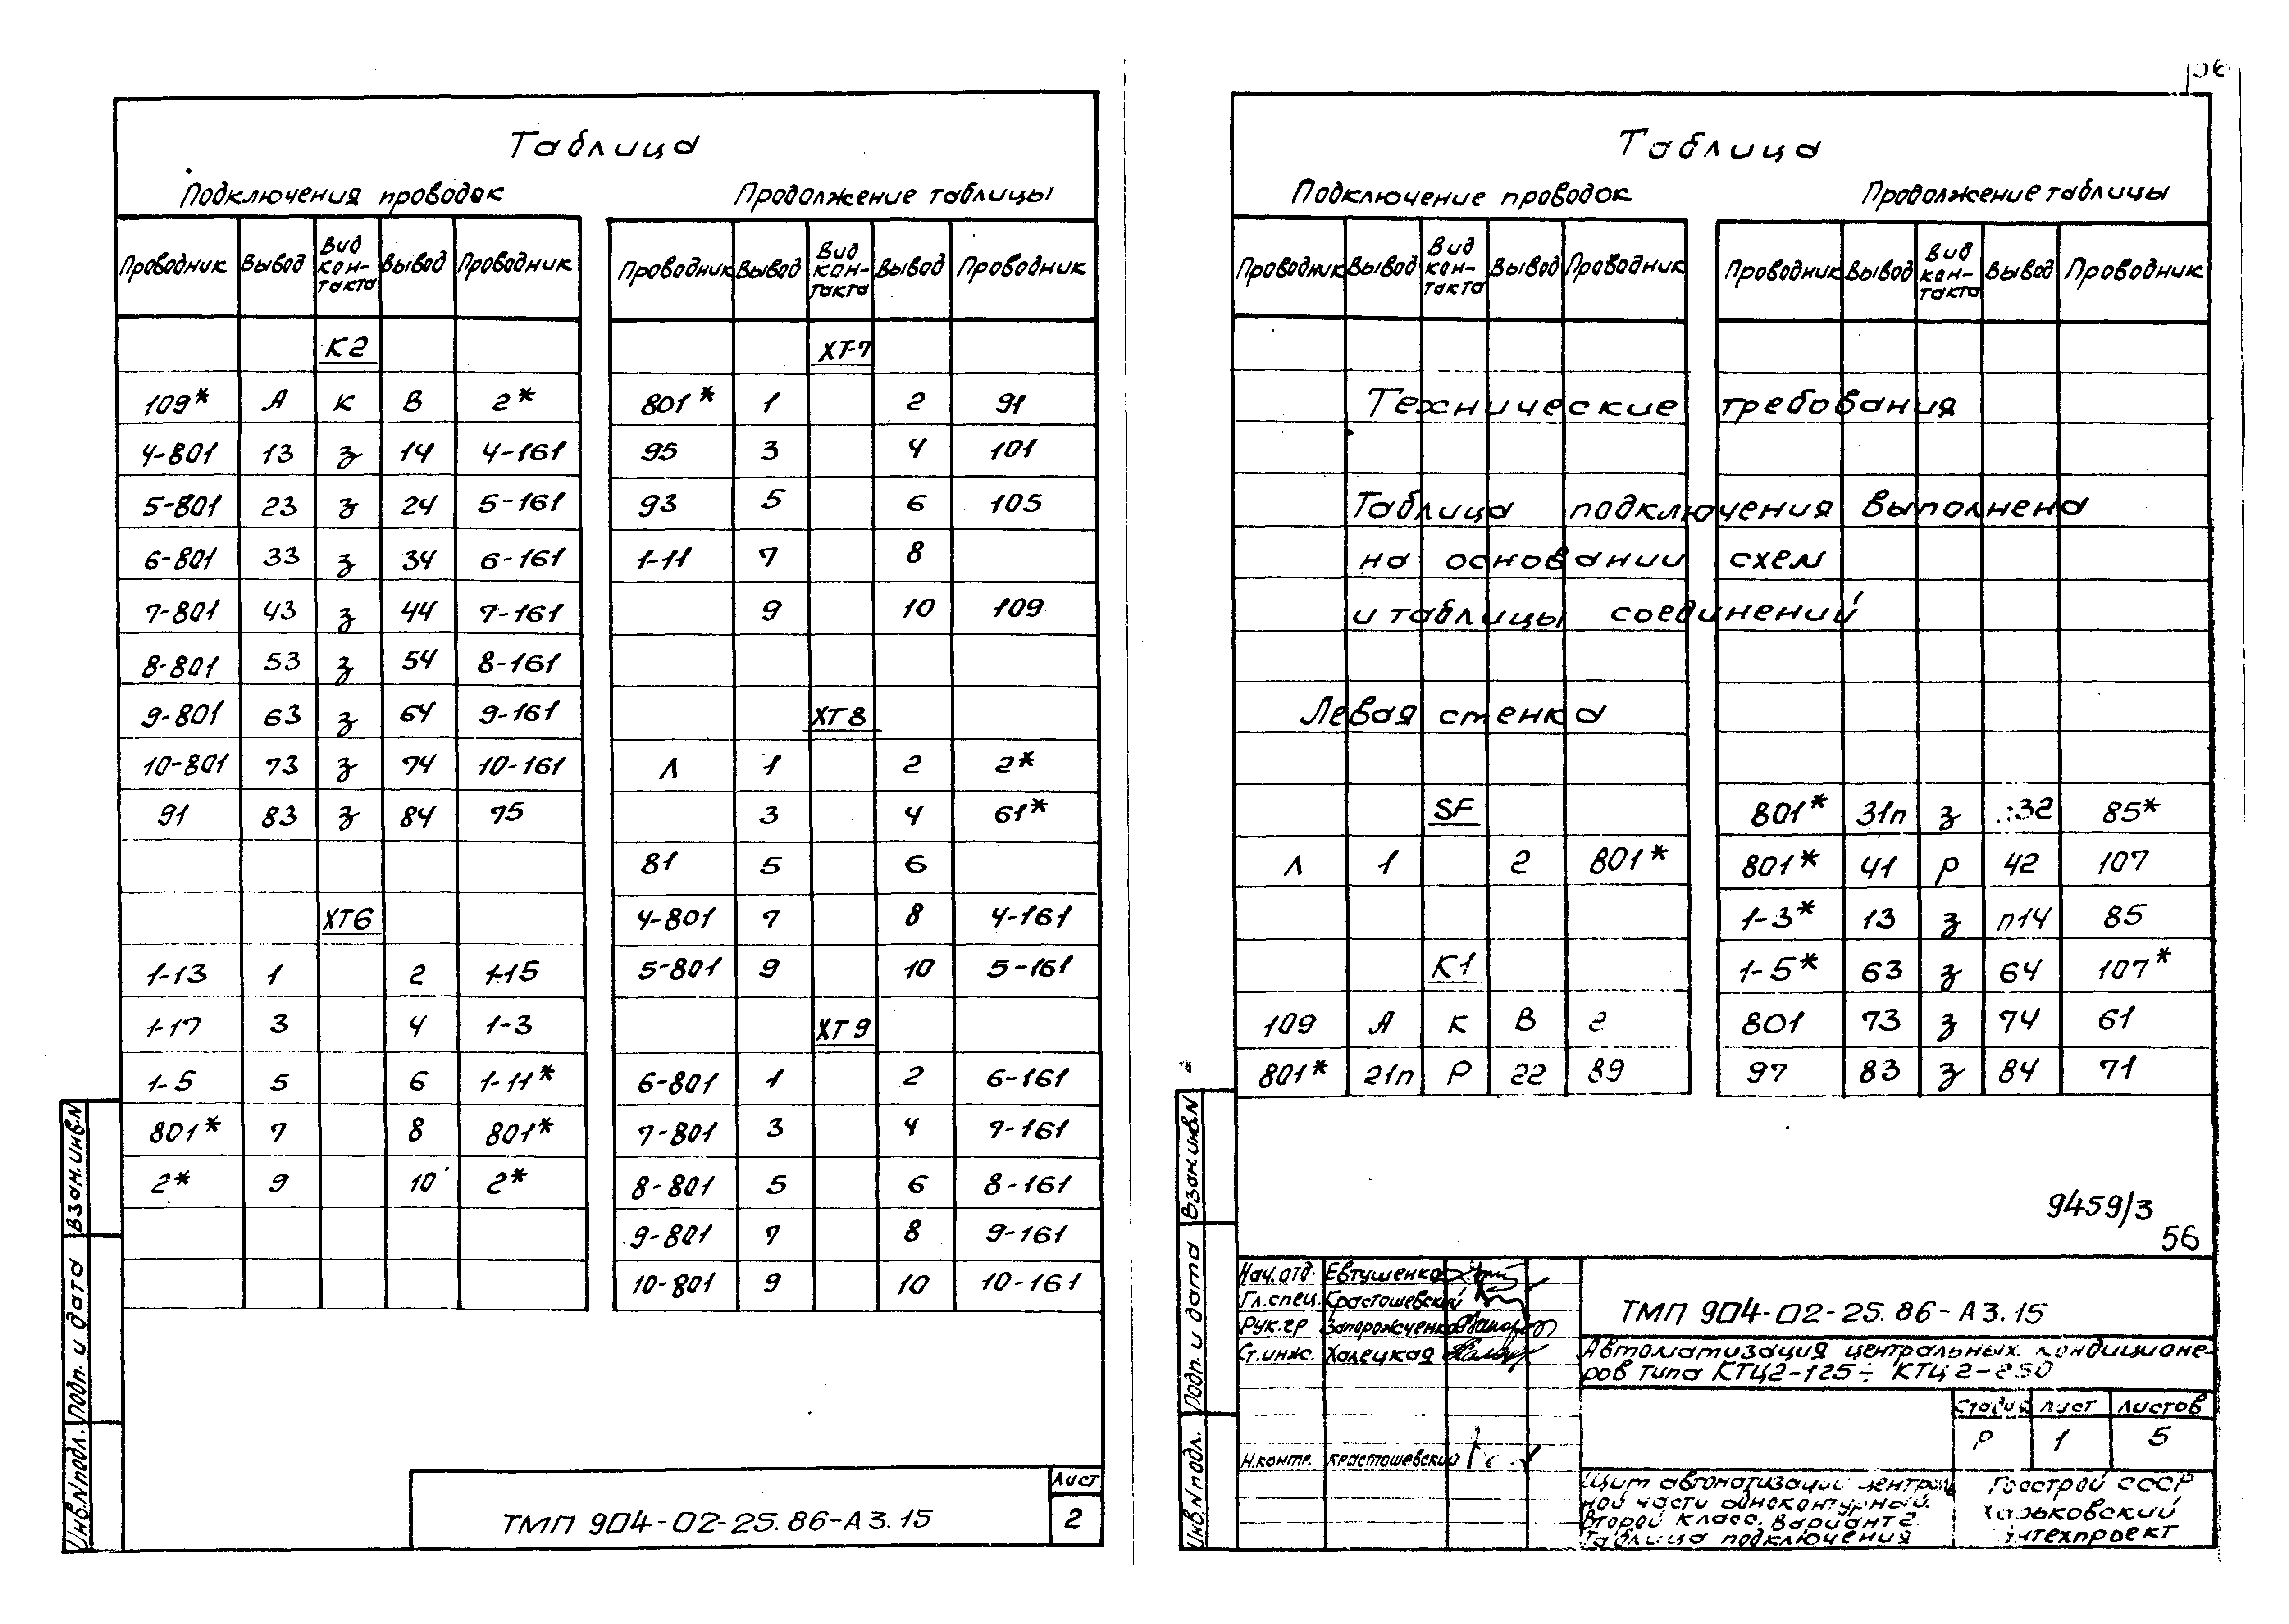 Таблица
Подключения проводок
Продолжение таблицы
Проводник Вывод Вид кон-такта Вывод Проводник
К2
109* А К В 2*
4-801 13 з 14 4-161
5-801 23 з 24 5-161
6-801 33 з 34 6-161
7-801 43 з 44 7-161
8-801 53 з 54 8-161
9-801 63 з 64 9-161
10-801 73 з 74 10-161
91 83 з 84 75
ХТ6
1-13 1 2 1-15
1-17 3 4 1-3
1-5 5 6 1-11*
801* 7 8 801*
2* 9 10 2*
Проводник Вывод Вид кон-такта Вывод Проводник
ХТ-7
801* 1 2 91
95 3 4 101
93 5 6 105
1-11 7 8
9 10 109
ХТ8
Л 1 2 2*
3 4 61*
81 5 6
4-801 7 8 4-161
5-801 9 10 5-161
ХТ9
6-801 1 2 6-161
7-801 3 4 7-161
8-801 5 6 8-161
9-801 7 8 9-161
10-801 9 10 10-161
Взам.инв.N
Подп. и дата
Инв.N подл.
ТМП 904-02-25.86-А3.15
Лист
2
Таблица
Подключение проводок
Продолжение таблицы
Проводник Вывод Вид кон-такта Вывод Проводник
Проводник Вывод Вид кон-такта Вывод Проводник
Технические требования
Таблица подключения выполнена
на основании схем
и таблицы соединений
Левая стенка
SF
Л 1 2 801*
К1
109 А К В 2
801* 21п Р 22 89
801* 31п з 32 85*
801* 41 Р 42 107
1-3* 13 з п14 85
1-5* 63 з 64 107*
801 73 з 74 61
97 83 з 84 71
9459/3
56
Взам.инв.N
Подп. и дата
Инв.N подл.
Нач.отд. Евтушенко
Гл.спец. Красташевский
Рук.гр Запорожченко
Ст.инж. Халецкая
Н.контр. Красташевский
ТМП 904-02-25.86-А3.15
Автоматизация центральных кондиционе-
ров типа КТЦ2-125÷ КТЦ2-250
Стадия Лист Листов
Р 1 5
Щит автоматизации централь
ной части одноконтурный.
Второй класс. Вариант 2.
Таблица подключения
Госстрой СССР
Харьковский